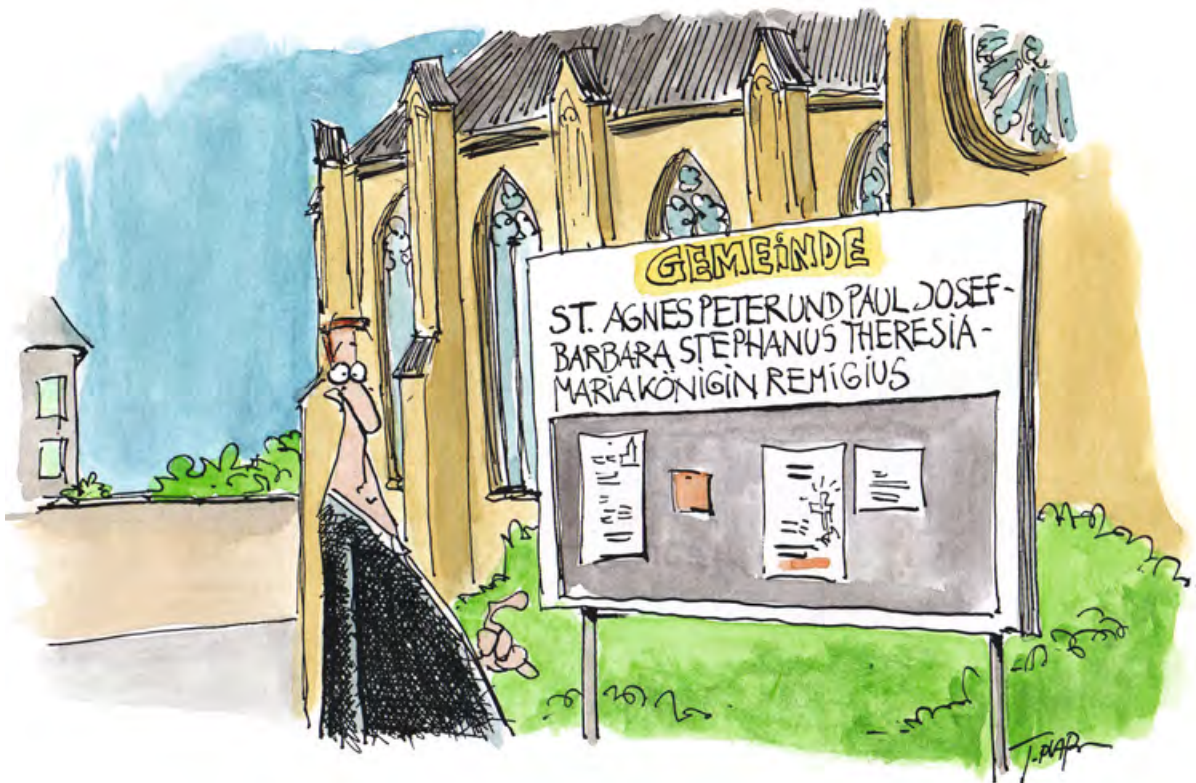 GEMEiNDE
ST. AGNES PETER UND PAUL JOSEF-
BARBARA STEPHANUS THERESiA-
MARiA KÖNiGiN REMiGiUS